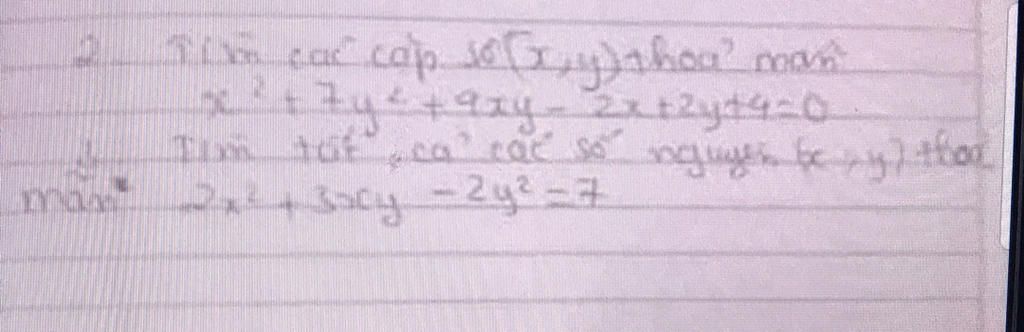 2 Tìm các cặp số (x,y) thoả mãn
x² + 7y² + 4xy - 2x + 2y + 4 = 0
Tìm tất cả các số nguyên (x, y) thoả
mãn 2x² + 3xy - 2y² = 7